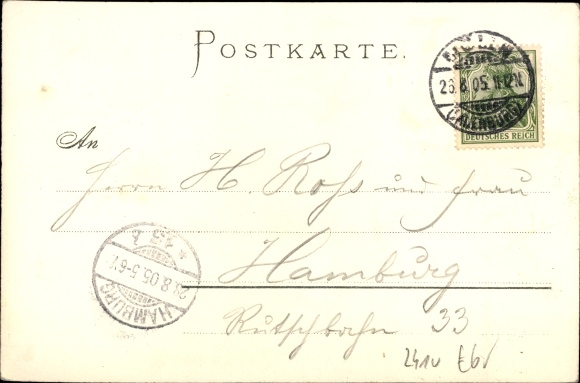 POSTKARTE.
26.8.05.
(LAUENBURG)
DEUTSCHES REICH
An
Herrn H. Rohs und Frau
Hamburg
Rutschbahn 33
HAMBURG
26.8.05.5-6N